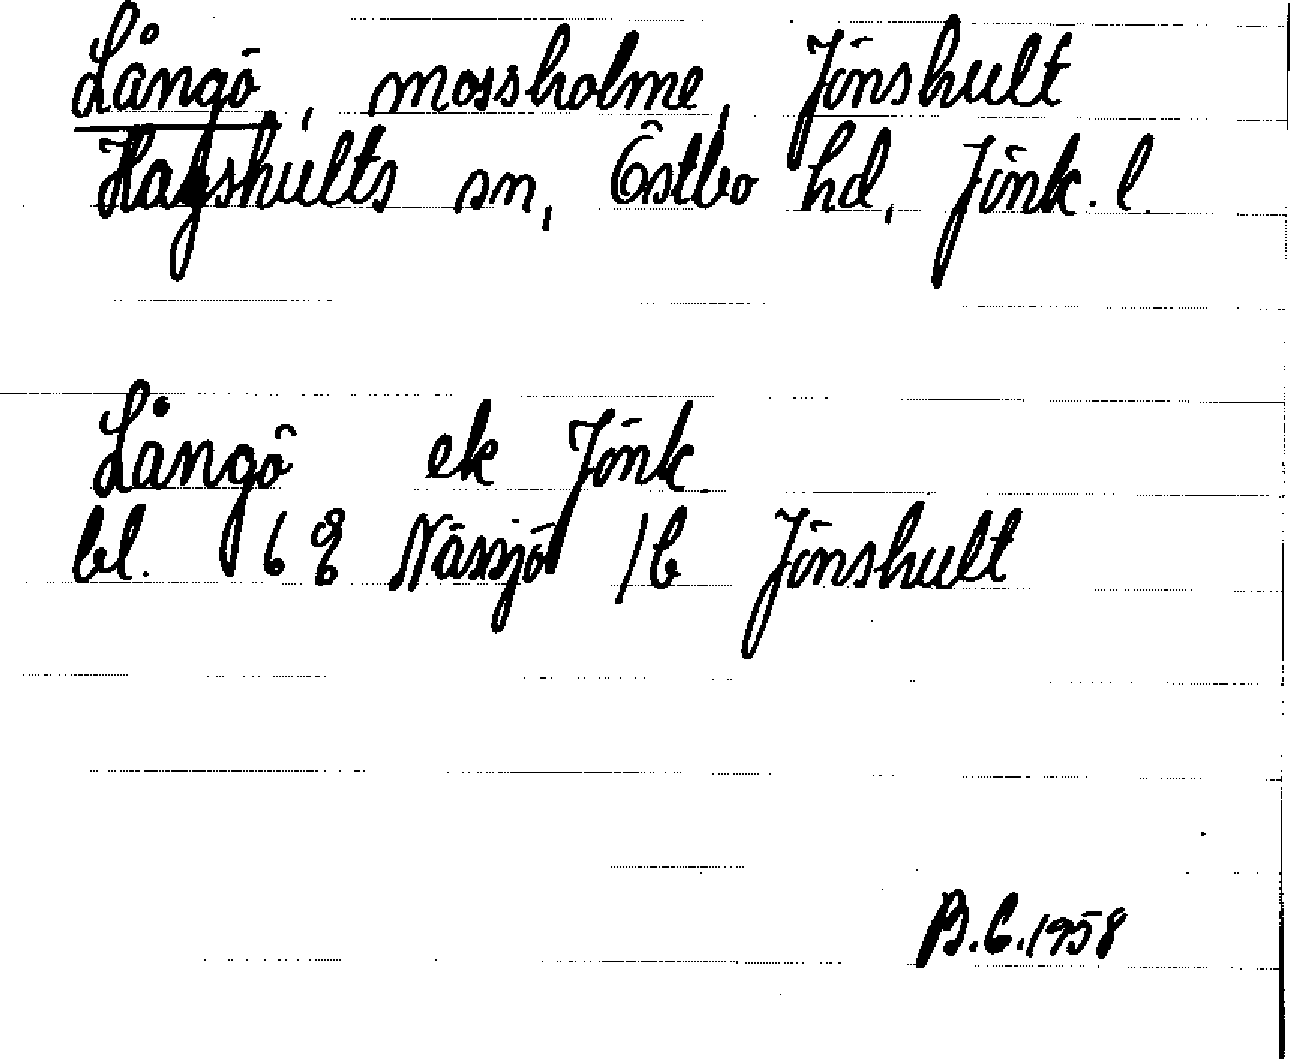 Långö, mossholme, Jönshult
Hagshults sn, Östbo hd, Jönk. l.
Långö ek Jönk
bl. 6 g Nässjö / b Jönshult
B.E. 1958